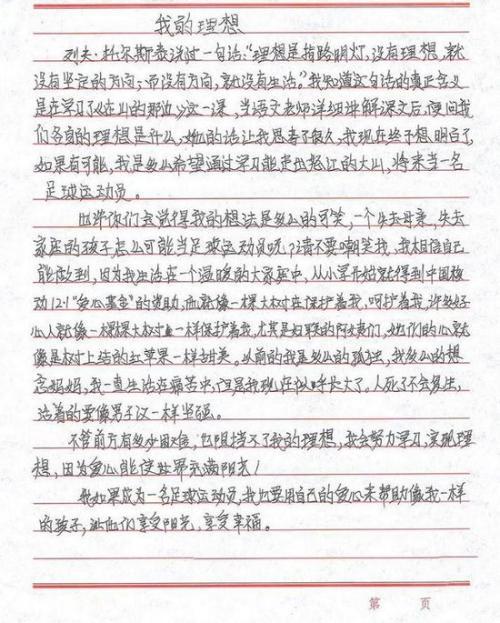 我的理想
列夫·托尔斯泰说过一句话:“理想是指路明灯,没有理想,就
没有坚定的方向;而没有方向,就没有生活。”我知道这句话的真正含义
是在学习了《在山的那边》这一课,当语文老师详细讲解课文后,便问我
们各自的理想是什么,她的话让我思考了很久,我现在终于想明白了,
如果有可能,我是多么希望通过学习能走出怒江的大山,将来当一名
足球运动员。
也许你们会觉得我的想法是多么的可笑,一个失去母亲,失去
家庭的孩子怎么可能当足球运动员呢?请不要嘲笑我,我相信自己
能做到,因为我生活在一个温暖的大家庭中,从小学开始就得到中国移
动12.1“爱心基金”的资助,而就像一棵大树在保护着我,呵护着我,许多好
心人就像一棵棵大树一样保护着我,尤其是妇联的阿姨们,她们的心就
像是树上结的红苹果一样甜美。以前的我是多么的孤独,我多么的想
念妈妈,我一直生活在痛苦中,但是我现在似乎长大了。人死了不会复生,
活着的要像男子汉一样坚强。
不管前方有多少困难,也阻挡不了我的理想,我会努力学习,实现理
想,因为爱心能使世界充满阳光!
我如果成为一名足球运动员,我也要用自己的爱心来帮助像我一样
的孩子,让他们享受阳光,享受幸福。
第 页